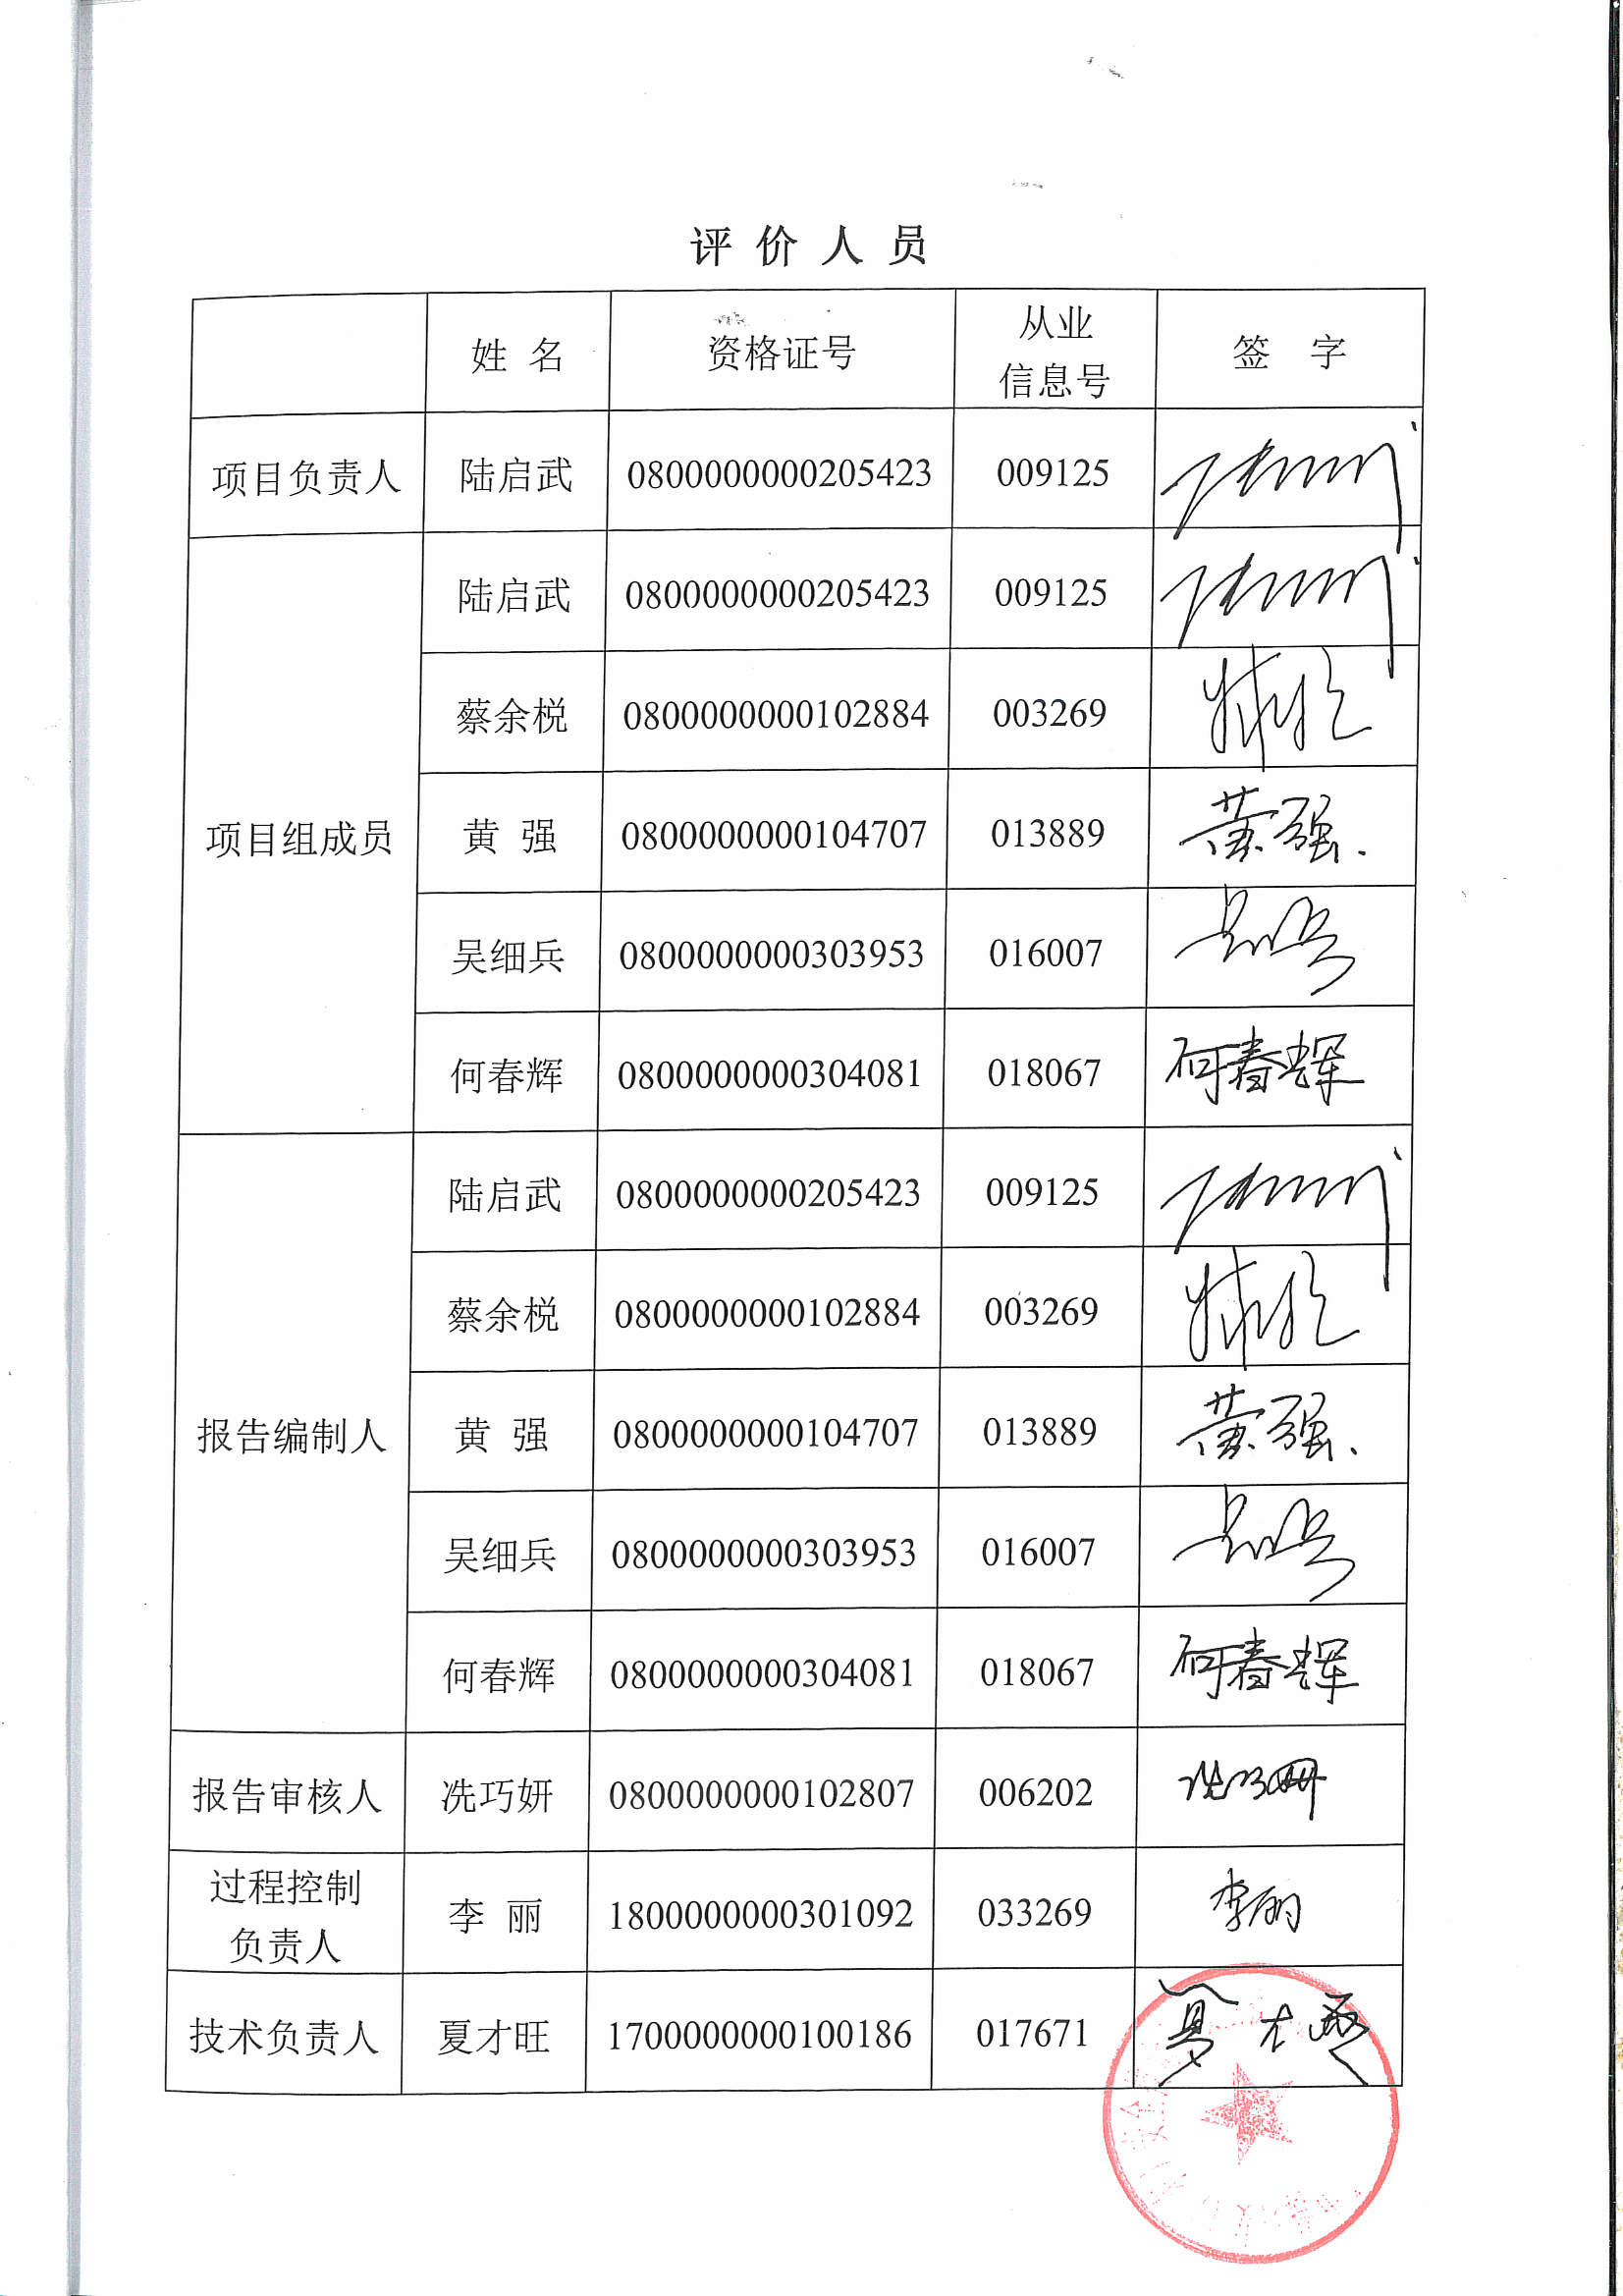 评价人员
姓名 资格证号 从业信息号 签字
项目负责人 陆启武 0800000000205423 009125
项目组成员 陆启武 0800000000205423 009125
蔡余棁 0800000000102884 003269
黄强 0800000000104707 013889 黄强
吴细兵 0800000000303953 016007
何春辉 0800000000304081 018067 何春辉
报告编制人 陆启武 0800000000205423 009125
蔡余棁 0800000000102884 003269
黄强 0800000000104707 013889 黄强
吴细兵 0800000000303953 016007
何春辉 0800000000304081 018067 何春辉
报告审核人 冼巧妍 0800000000102807 006202
过程控制负责人 李丽 1800000000301092 033269 李丽
技术负责人 夏才旺 1700000000100186 017671 夏才旺